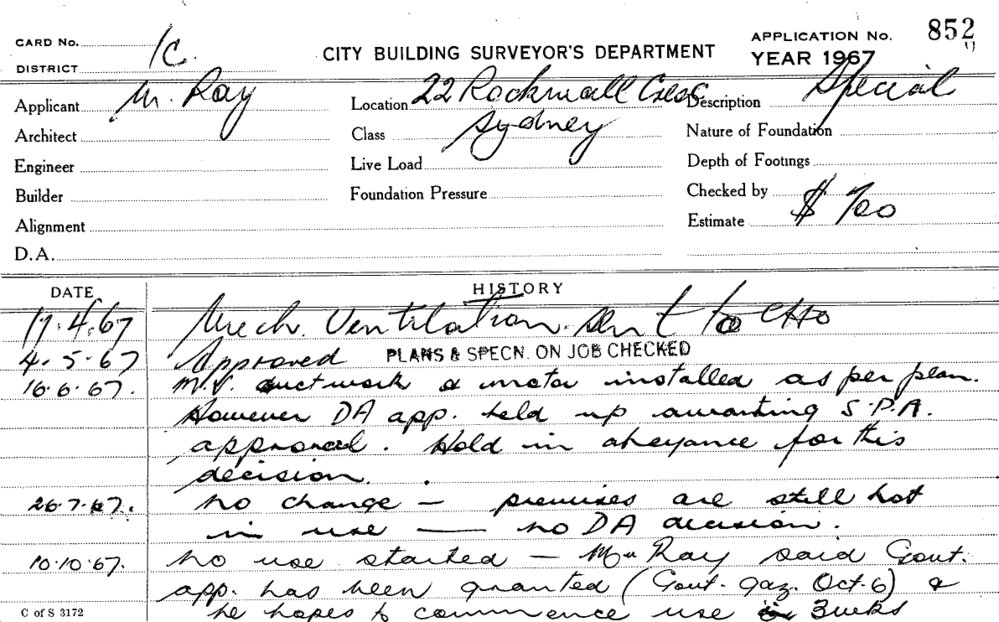 CARD No. 1C.
DISTRICT
CITY BUILDING SURVEYOR'S DEPARTMENT
APPLICATION No. 852/67
YEAR 1967
Applicant M. Ray
Location 22 Rockwall Cresc
Description Special
Architect
Class Sydney
Nature of Foundation
Engineer
Live Load
Depth of Footings
Builder
Foundation Pressure
Checked by
Alignment
Estimate $ 700
D.A.
DATE HISTORY
17.4.67 Mech. Ventilation. Sent to
4.5.67 Approved PLANS & SPECN. ON JOB CHECKED
16.6.67. M.V. ductwork & motor installed as per plan.
However DA app. held up awaiting S.P.A.
approval. Hold in abeyance for this
decision.
26.7.67. No change — premises are still not
in use — no DA decision.
10.10.67. No use started — Mr Ray said Govt.
app. has been granted (Govt. gaz. Oct. 6) &
he hopes to commence use 3 weeks
C of S 3172